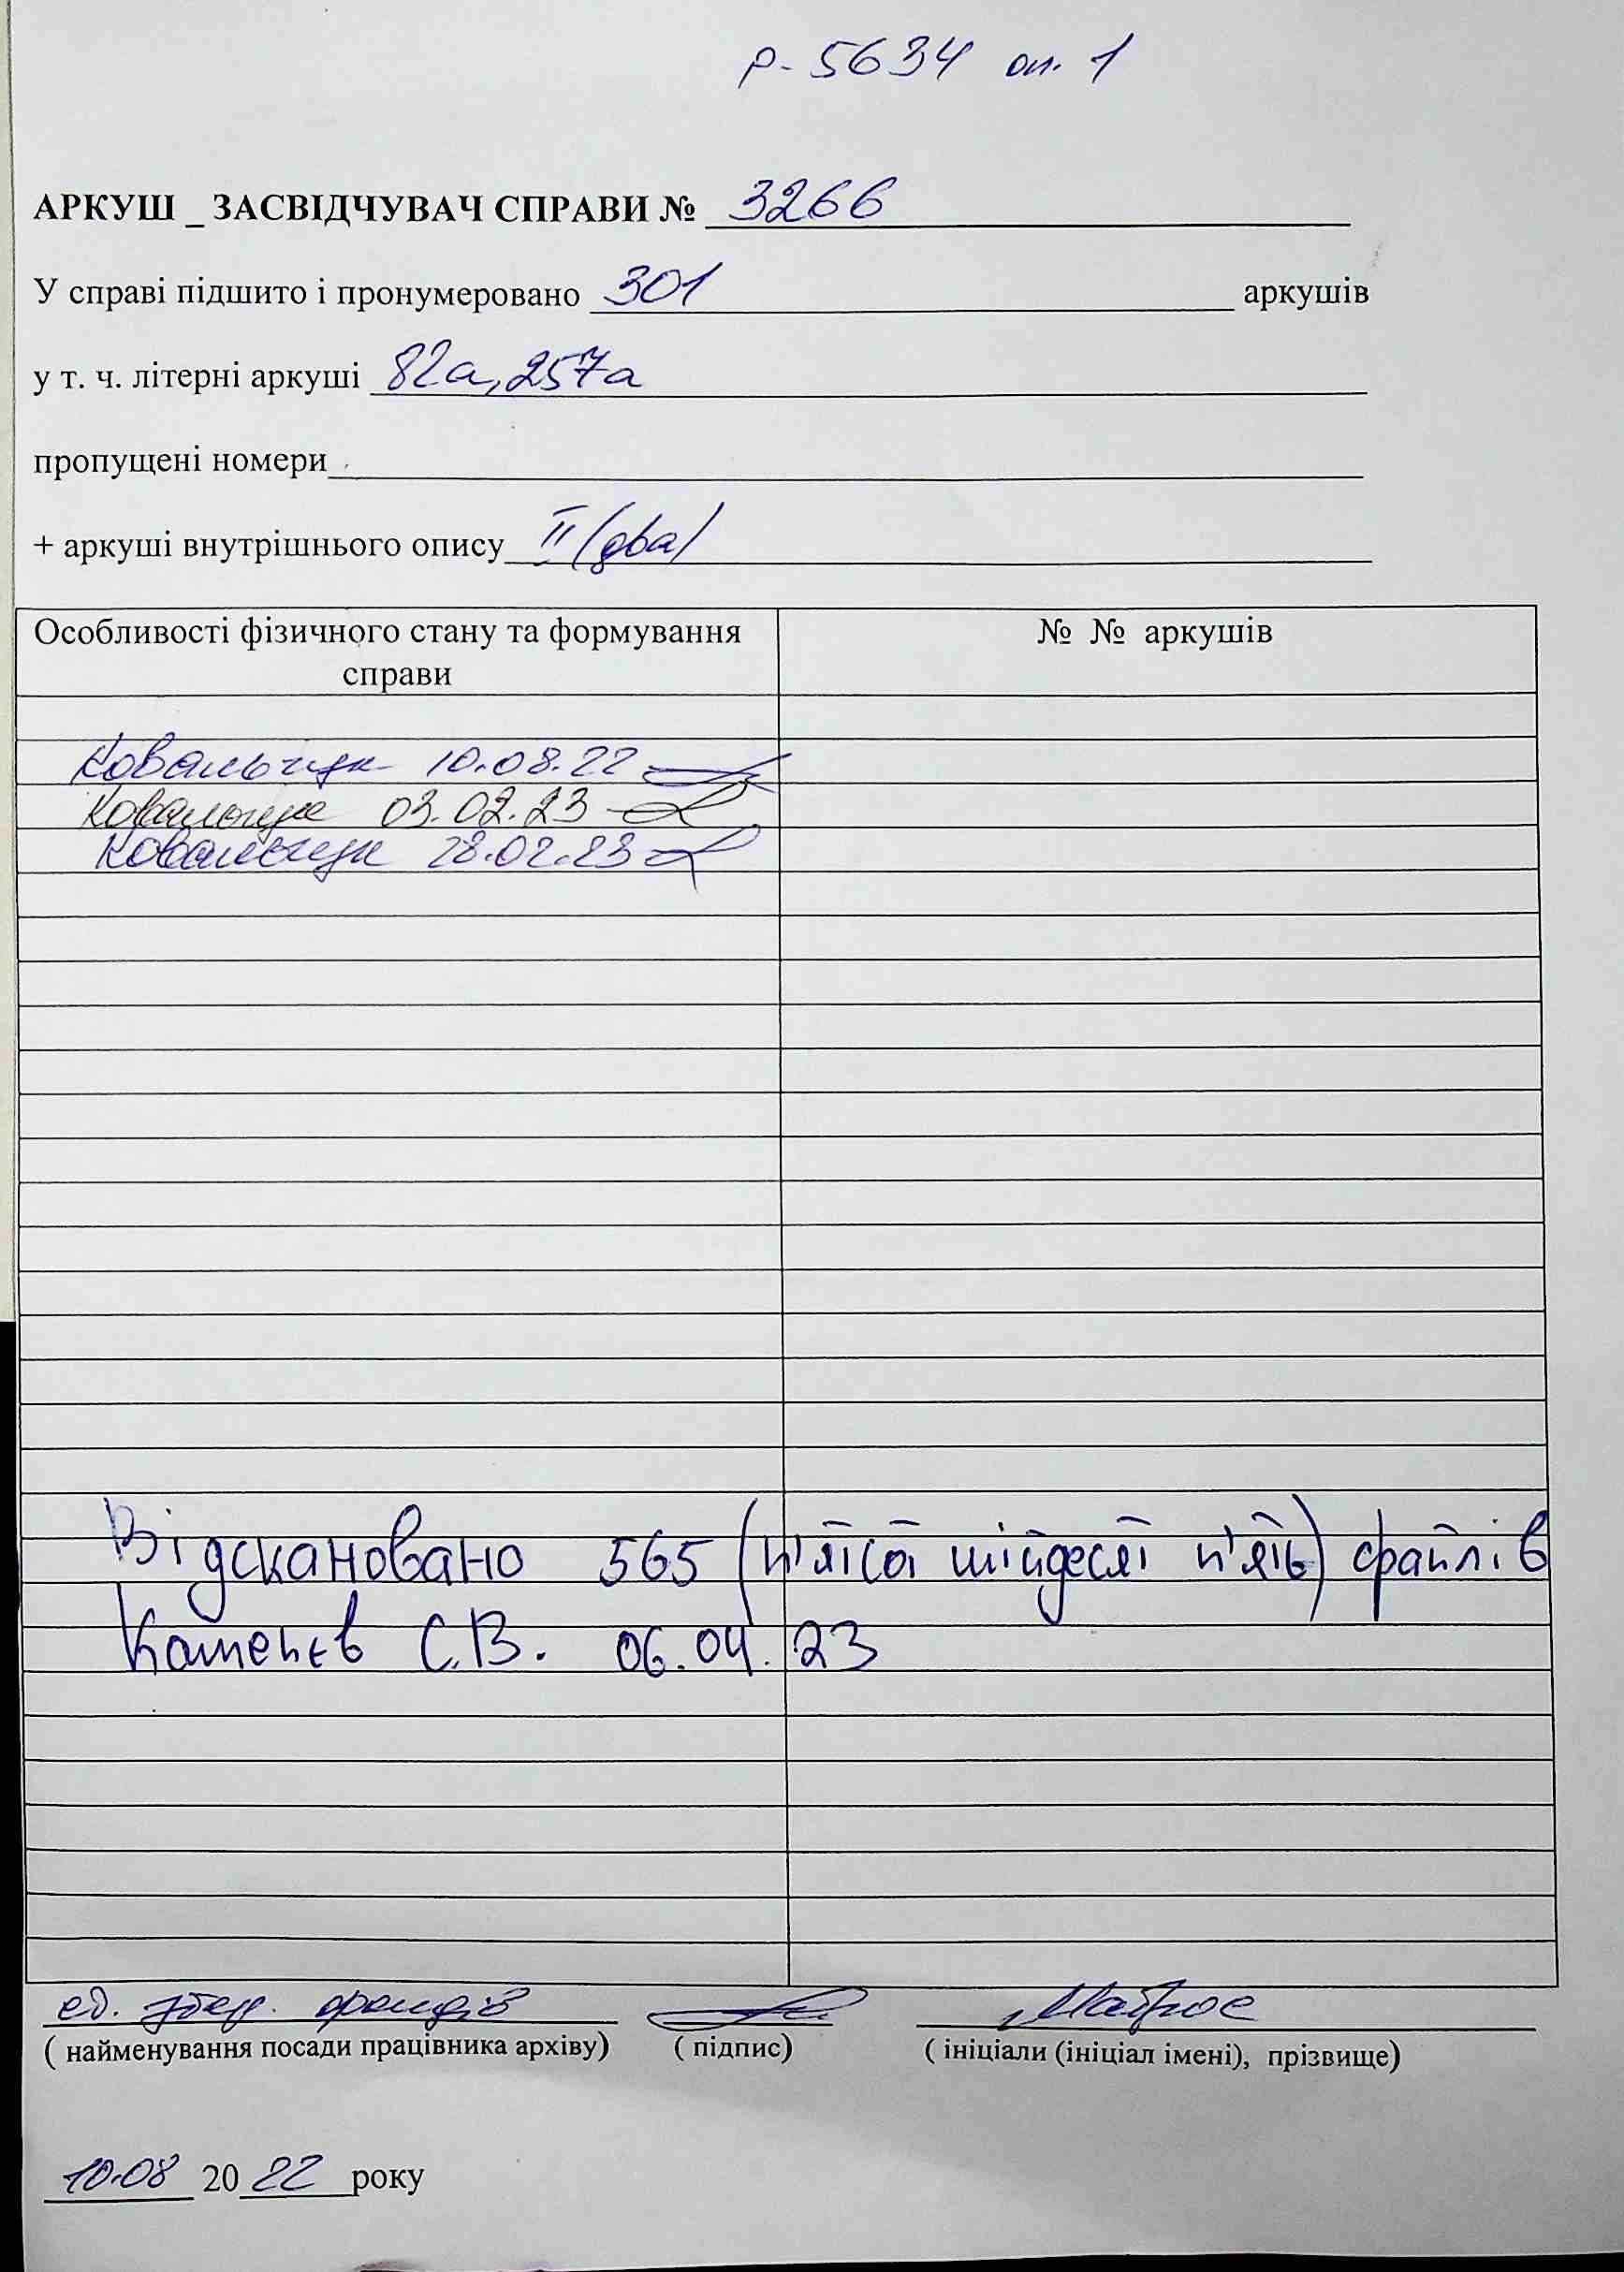 Р-5634 оп. 1
АРКУШ _ ЗАСВІДЧУВАЧ СПРАВИ № 3266
У справі підшито і пронумеровано 301 аркушів
у т. ч. літерні аркуші 82а, 257а
пропущені номери
+ аркуші внутрішнього опису II (два)
Особливості фізичного стану та формування
справи
№ № аркушів
Ковальчук 10.08.22
Ковальчук 03.02.23
Ковальчук 28.02.23
Відскановано 565 (п'ятсот шістдесят п'ять) файлів
С.В. 06.04.23
фондів
( найменування посади працівника архіву) ( підпис) ( ініціали (ініціал імені), прізвище)
10.08 2022 року